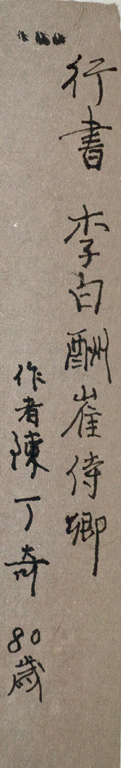 行書 李白酬崔侍卿
作者陳丁奇 80歲